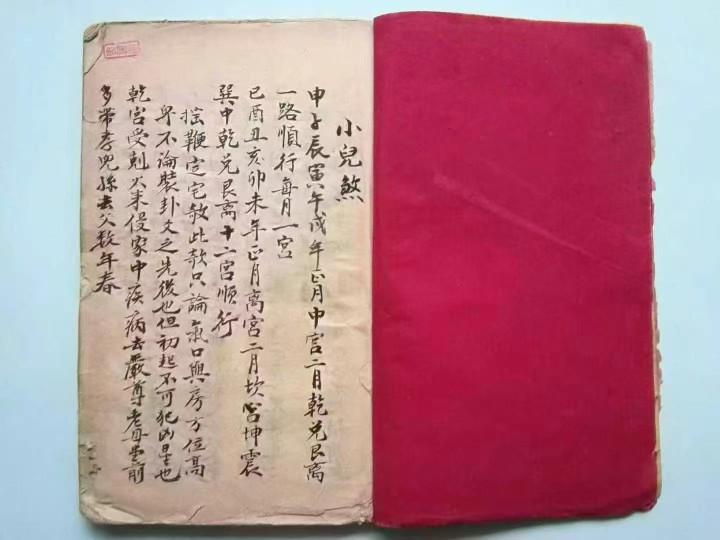 小兒煞
甲子辰寅午戌年正月中宫二月乾兑艮离
一路順行每月一宫
巳酉丑亥卯未年正月离宫二月坎宫坤震
巽中乾兑艮离十二宫順行
搖鞭定宅煞此欵只論氣口與房方位高
卑不論裝卦爻之先後也但初起不可犯凶星也
乾宫受剋火来侵家中疾病去嚴尊老母堂前
多带孝兒孫去父数年春